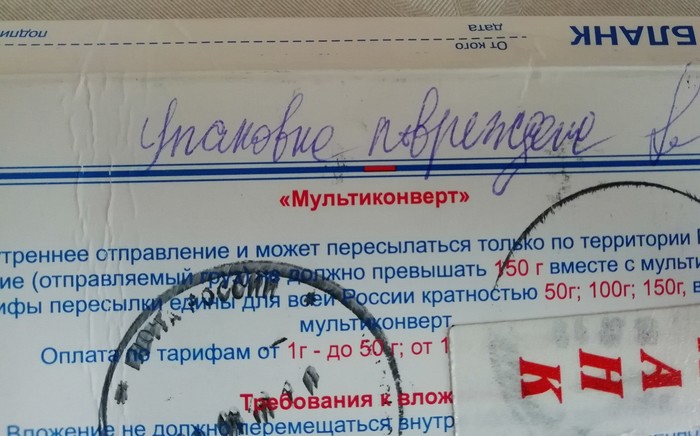 БЛАНК
От кого
дата
подпи
Упаковка повреждена
«Мультиконверт»
утреннее отправление и может пересылаться только по территории
ие (отправляемый груз) не должно превышать 150 г вместе с мульти
ифы пересылки едины для всей России кратностью 50г; 100г; 150г, в
мультиконверт
Оплата по тарифам от 1г - до 50 г; от 1
Требования к влож
Вложение не должно перемещаться внутр
ПОЧТА РОССИИ
АНК